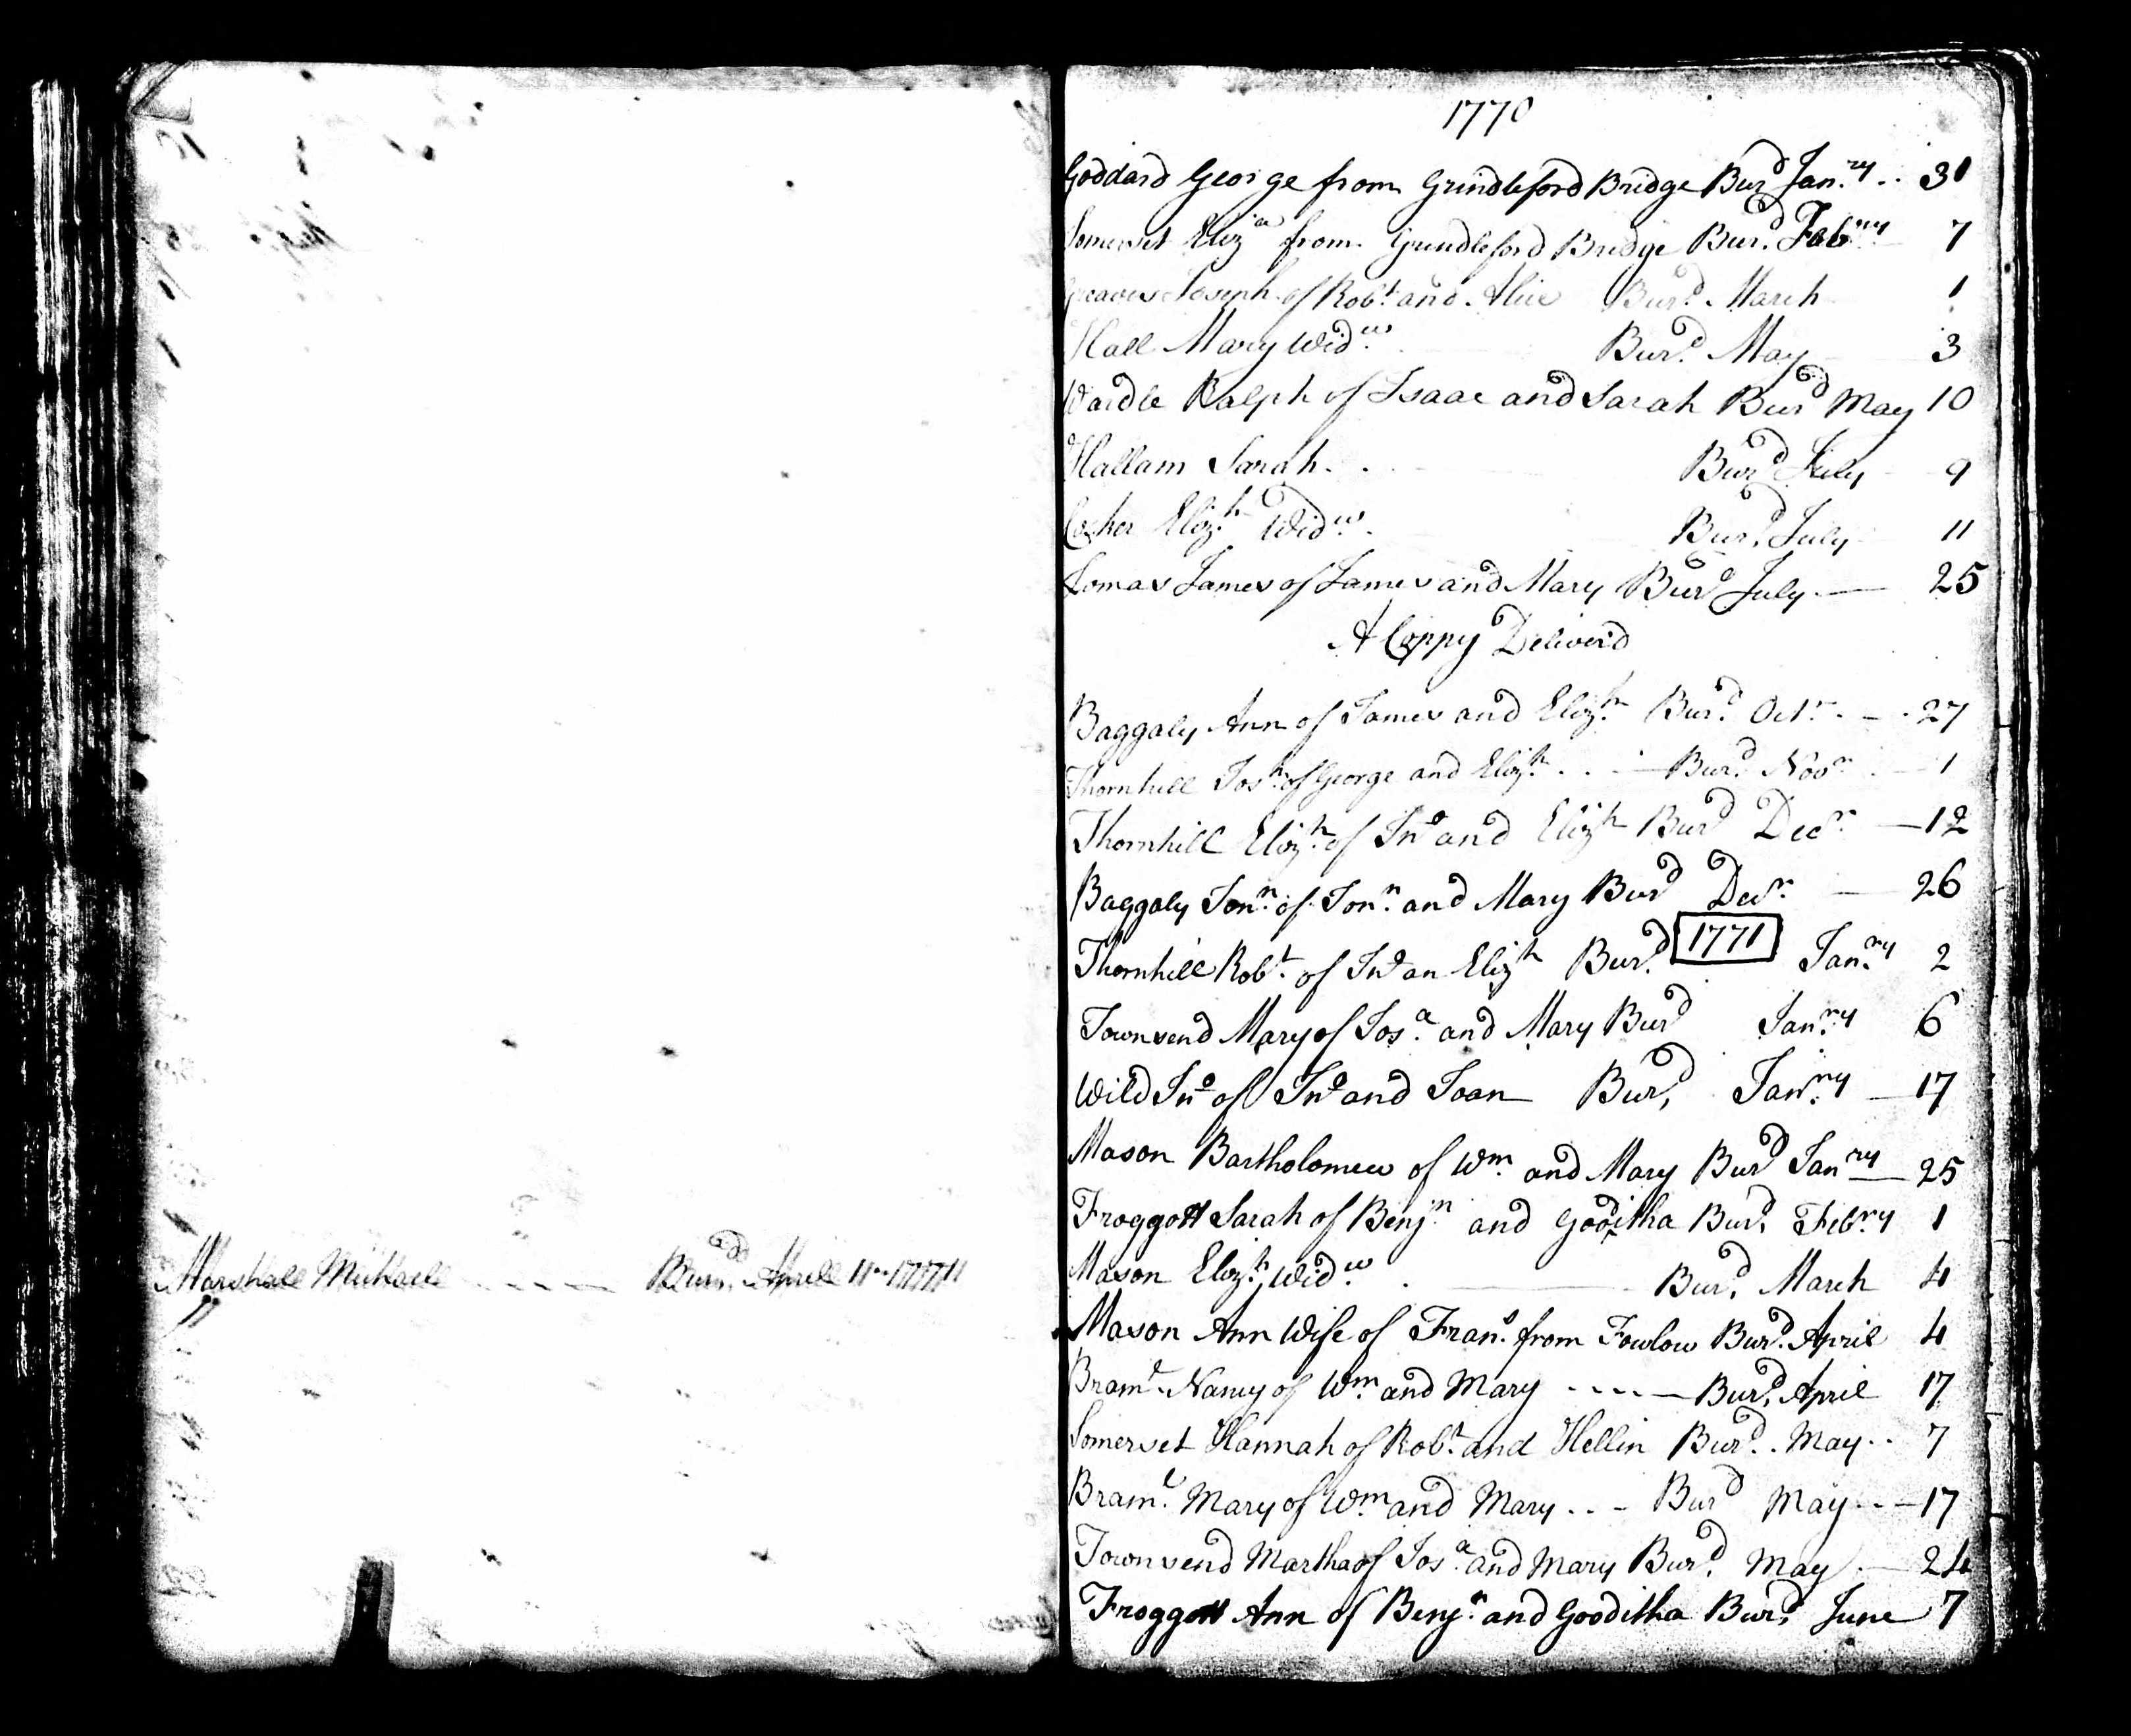 Marshall Michaell - - - - Bur.d Aprill 11th 1771
1770
Goddard George from Grindleford Bridge Burd Jan.ry .. 31
Somerset Eliza from Grindleford Bridge Bur.d Febry 7
Greaves Joseph of Robt and Alice Bur.d March 1
Hall Mary Widw Bur.d May 3
Wardle Ralph of Isaac and Sarah Burd May 10
Hallam Sarah Burd July 9
Cocker Eliz.h Widw Bur.d July 11
Lomas James of James and Mary Burd July — 25
A Coppy Deliverd
Baggaly Ann of James and Eliz.h Bur.d Octr. — 27
Thornhill Josh of George and Eliz.h .. — Bur.d Novr — 1
Thornhill Eliz.h of Jno and Elizh Burd Decr — 12
Baggaly Jon.n of Jon.n and Mary Burd Decr — 26
Thornhill Robt of Jno an Elizh Bur.d 1771 Jan.ry 2
Townsend Mary of Jos.a and Mary Burd Jan.ry 6
Wild Jno of Jno and Joan Bur.d Jan.ry — 17
Mason Bartholomew of Wm and Mary Burd Janry — 25
Froggott Sarah of Benj.n and Gooditha Bur.d Febry 1
Mason Eliz.h Widw — Bur.d March 4
Mason Ann Wife of Fran.s from Fowlow Bur.d April 4
Bram.l Nancy of Wm and Mary - - - — Bur.d April 17
Somerset Hannah of Robt and Hellin Bur.d . May .. 7
Bram.l Mary of Wm and Mary .. - Burd May .. — 17
Townsend Martha of Jos.a and Mary Bur.d May — 24
Froggott Ann of Benj.n and Gooditha Bur.d June 7